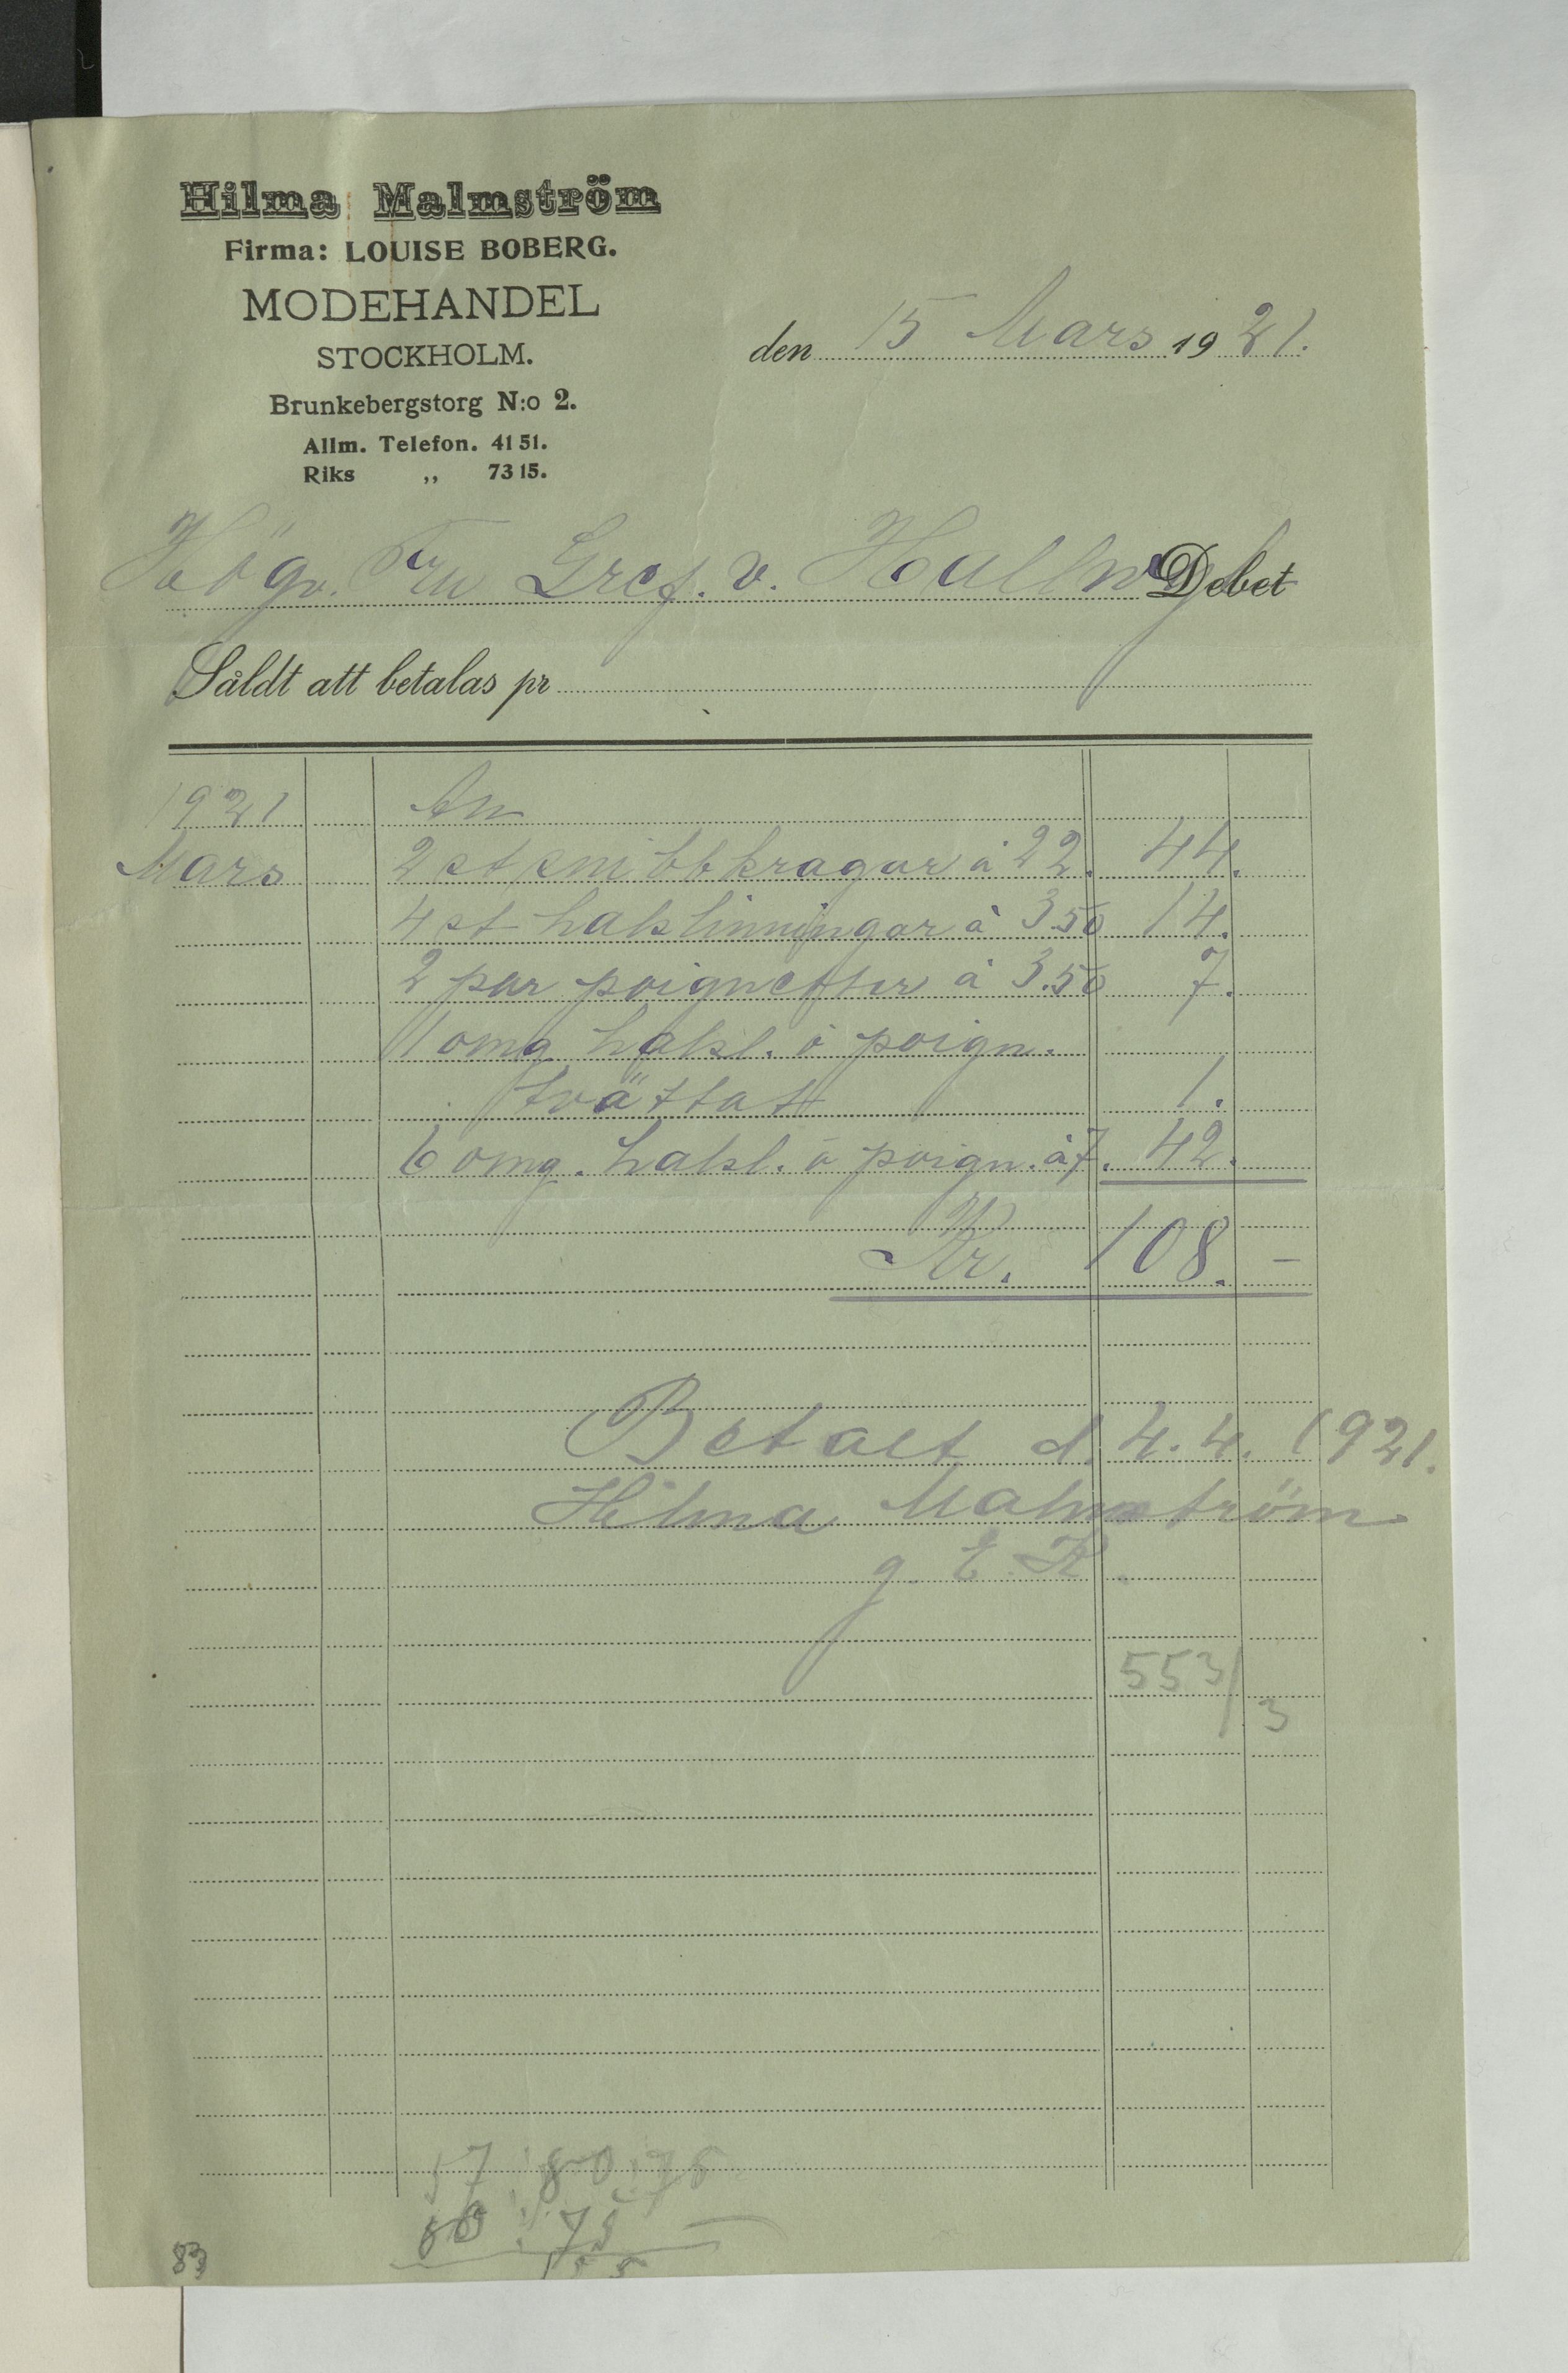 Hilma Malmström
Firma: LOUISE BOBERG.
MODEHANDEL
STOCKHOLM.
Brunkebergstorg N:o 2.
Allm. Telefon. 41 51.
Riks „ 73 15.
den 15 Mars 1921.
Högv. Fru Gref. v. Hallwyl Debet
Såldt att betalas pr
1921
Mars 2 st snibbkragar à 22. 44.
4 st halslinningar à 3.50 14.
2 par poignetter à 3.50 7.
1 omg. halsl. o poign.
tvättat 1.
6 omg. halsl. o poign. à 7. 42.
Kr. 108. –
Betalt d. 4.4. 1921.
Hilma Malmström
g. E. R.
553/3
83